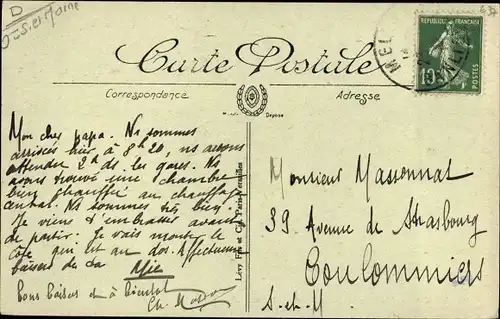 D
Ous-et-Marne
Carte Postale
Correspondance
Adresse
Modèle Déposé
RÉPUBLIQUE FRANÇAISE
10c
POSTES
MEL
Mon cher papa. Ns sommes
arrivés hier à 8h20, ns avons
attendu 2h ds les gares. Ns
avons trouvé une chambre
bien chauffée au chauffage
central. Ns sommes très bien.
Je viens t'embrasser avant
de partir. Je vais monter la
côte qui est au dos. Affectueux
baisers de ta
Bons baisers et à bientôt
Ch.
Lévy Fils et Cie, Paris
Monsieur Massonnat
39 Avenue de Strasbourg
Coulommiers
S.-et-M.